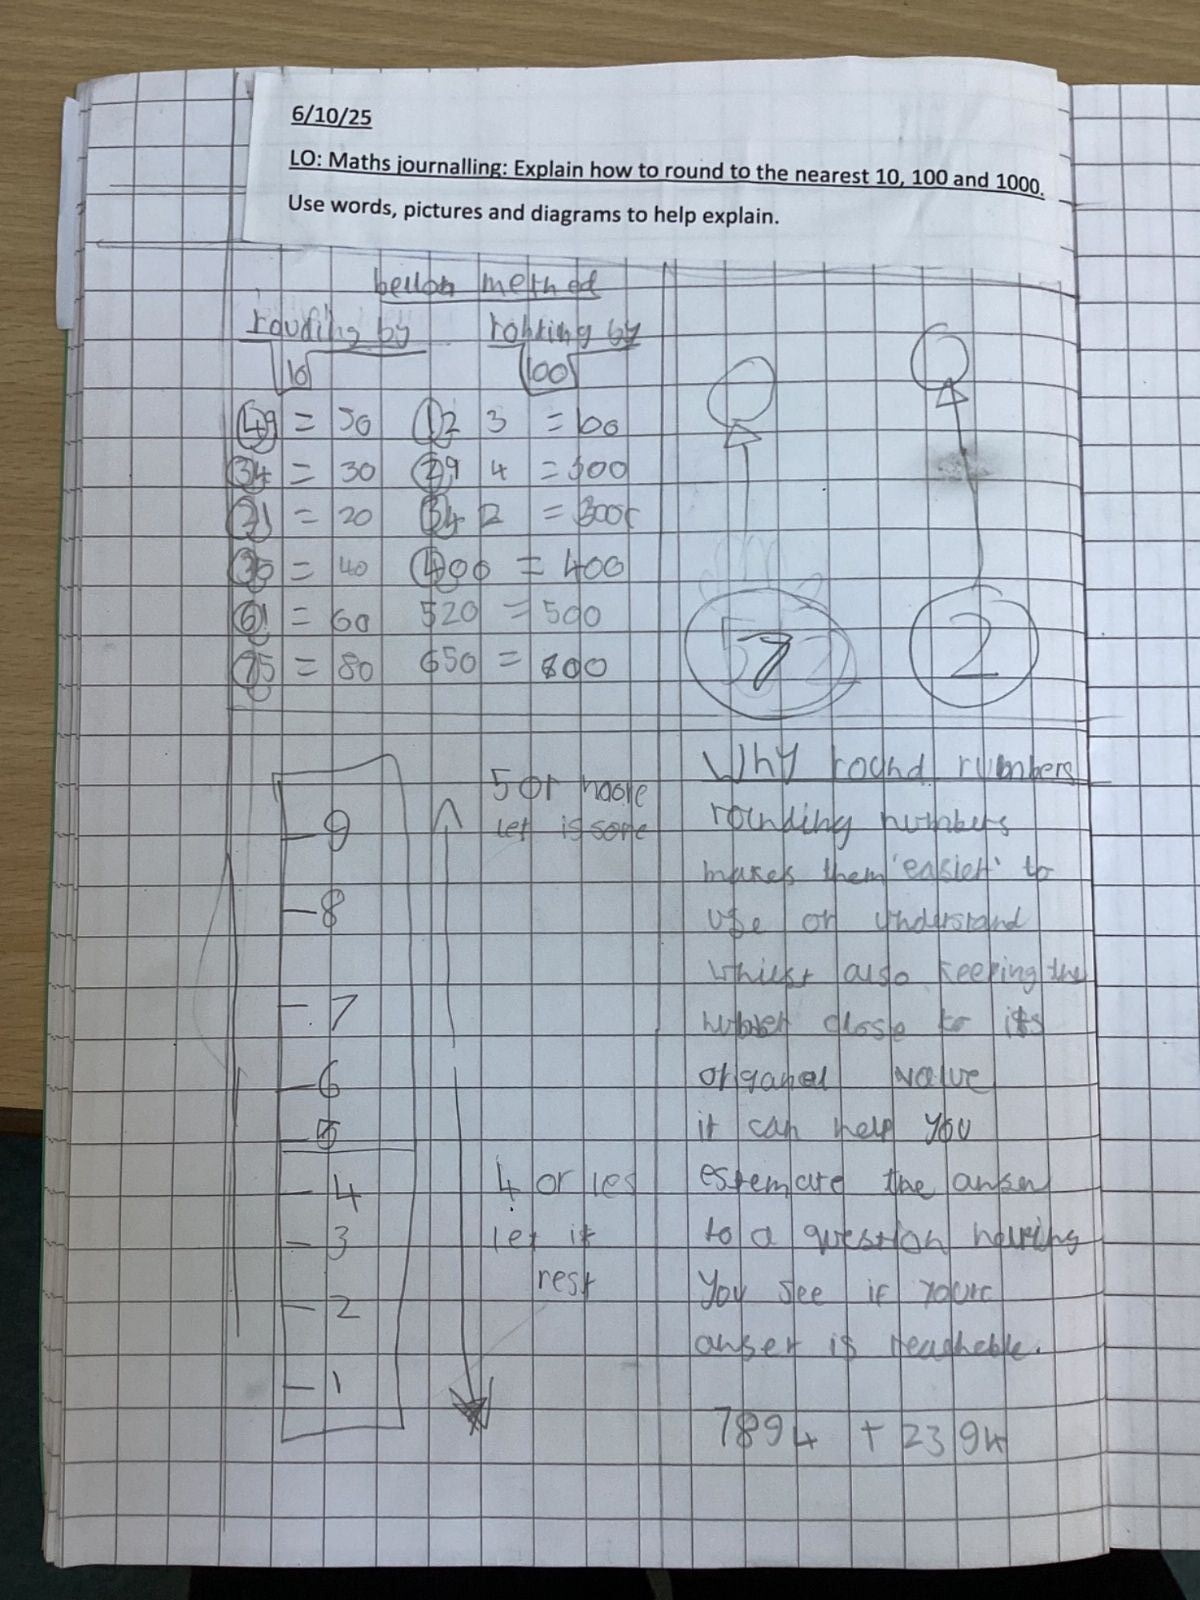 6/10/25
LO: Maths journalling: Explain how to round to the nearest 10, 100 and 1000.
Use words, pictures and diagrams to help explain.
method
by
by
10
100
49 = 50
34 = 30
21 = 20
35 = 40
61 = 60
75 = 80
12 3 = 100
29 4 = 300
34 2 = 300
400 = 400
520 = 500
650 =
7
2
9
8
7
6
5
4
3
2
1
5 or
let
4 or les
let it
rest
Why round numbers
rounding numbers
makes them 'easier' to
use or understand
whilst also keeping the
close to its
value
it can help you
the
to a question
you see if
anser is
7894 + 2394